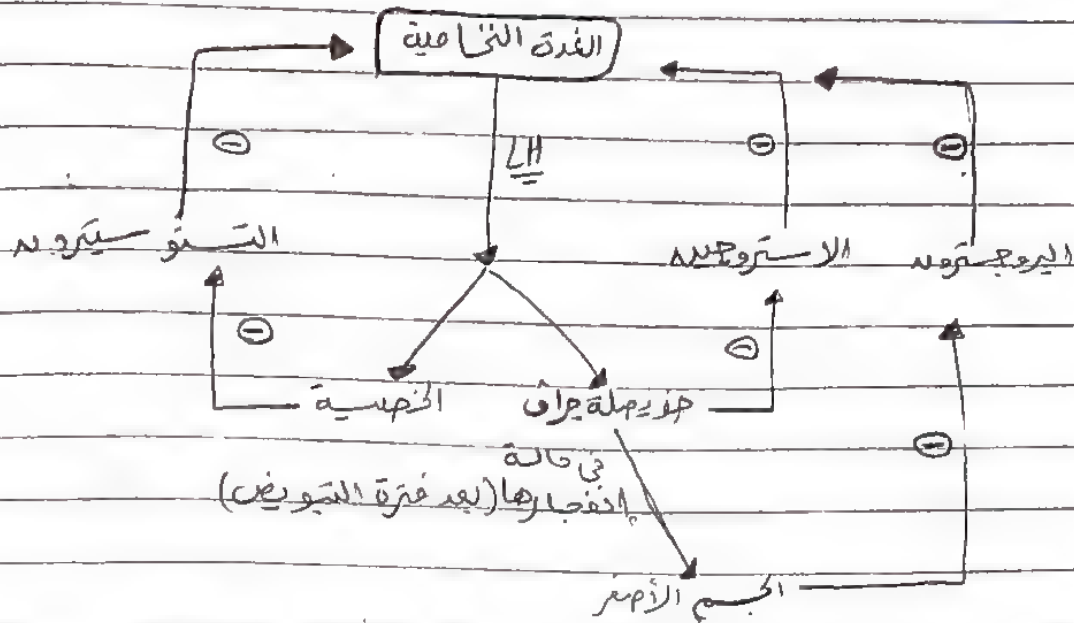 الغدة النخامية
⊖ LH ⊖ ⊖
التستوستيرون الاستروجين البروجسترون
⊖ ⊖
الخصية حويصلة جراف
⊖
في حالة
إنفجارها (بعد فترة التبويض)
الجسم الأصفر